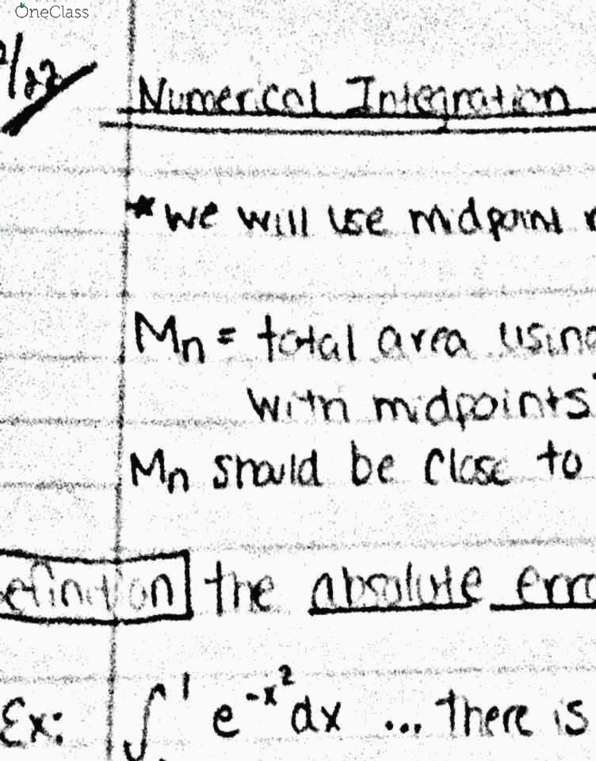 OneClass
Numerical Integration
*we will use midpoint
Mn = total area using
with midpoints
Mn should be close to
the absolute
Ex: ∫¹ e^-x² dx ... there is